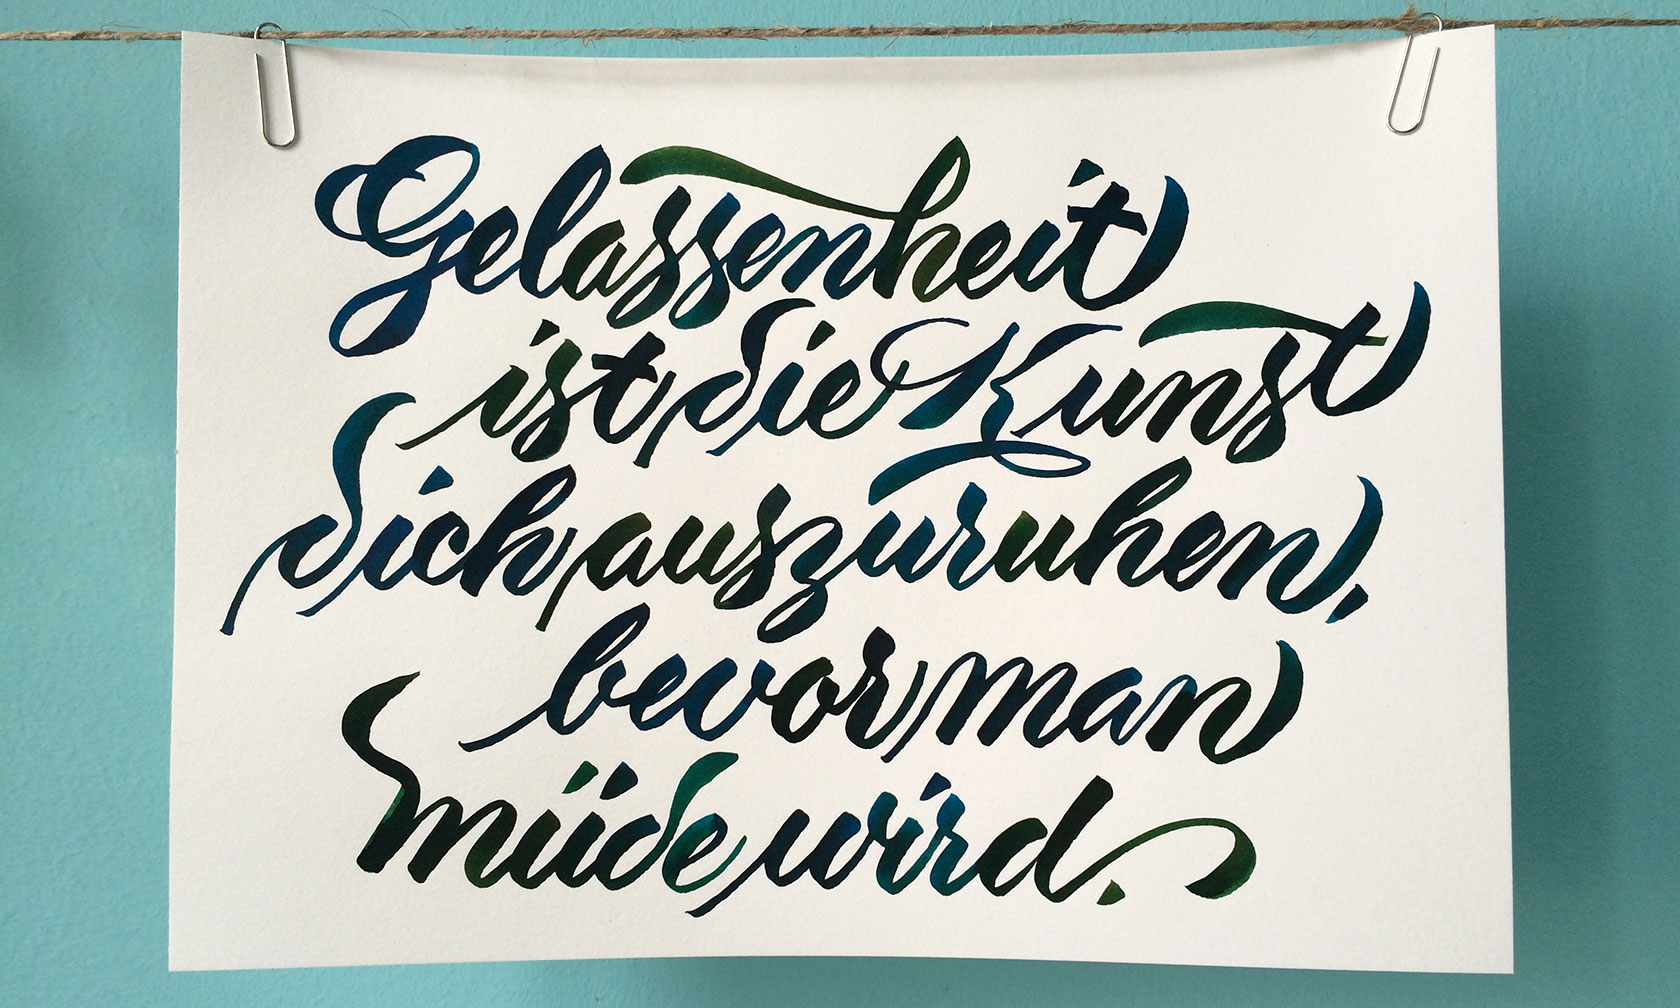 Gelassenheit
ist die Kunst
sich auszuruhen,
bevor man
müde wird.